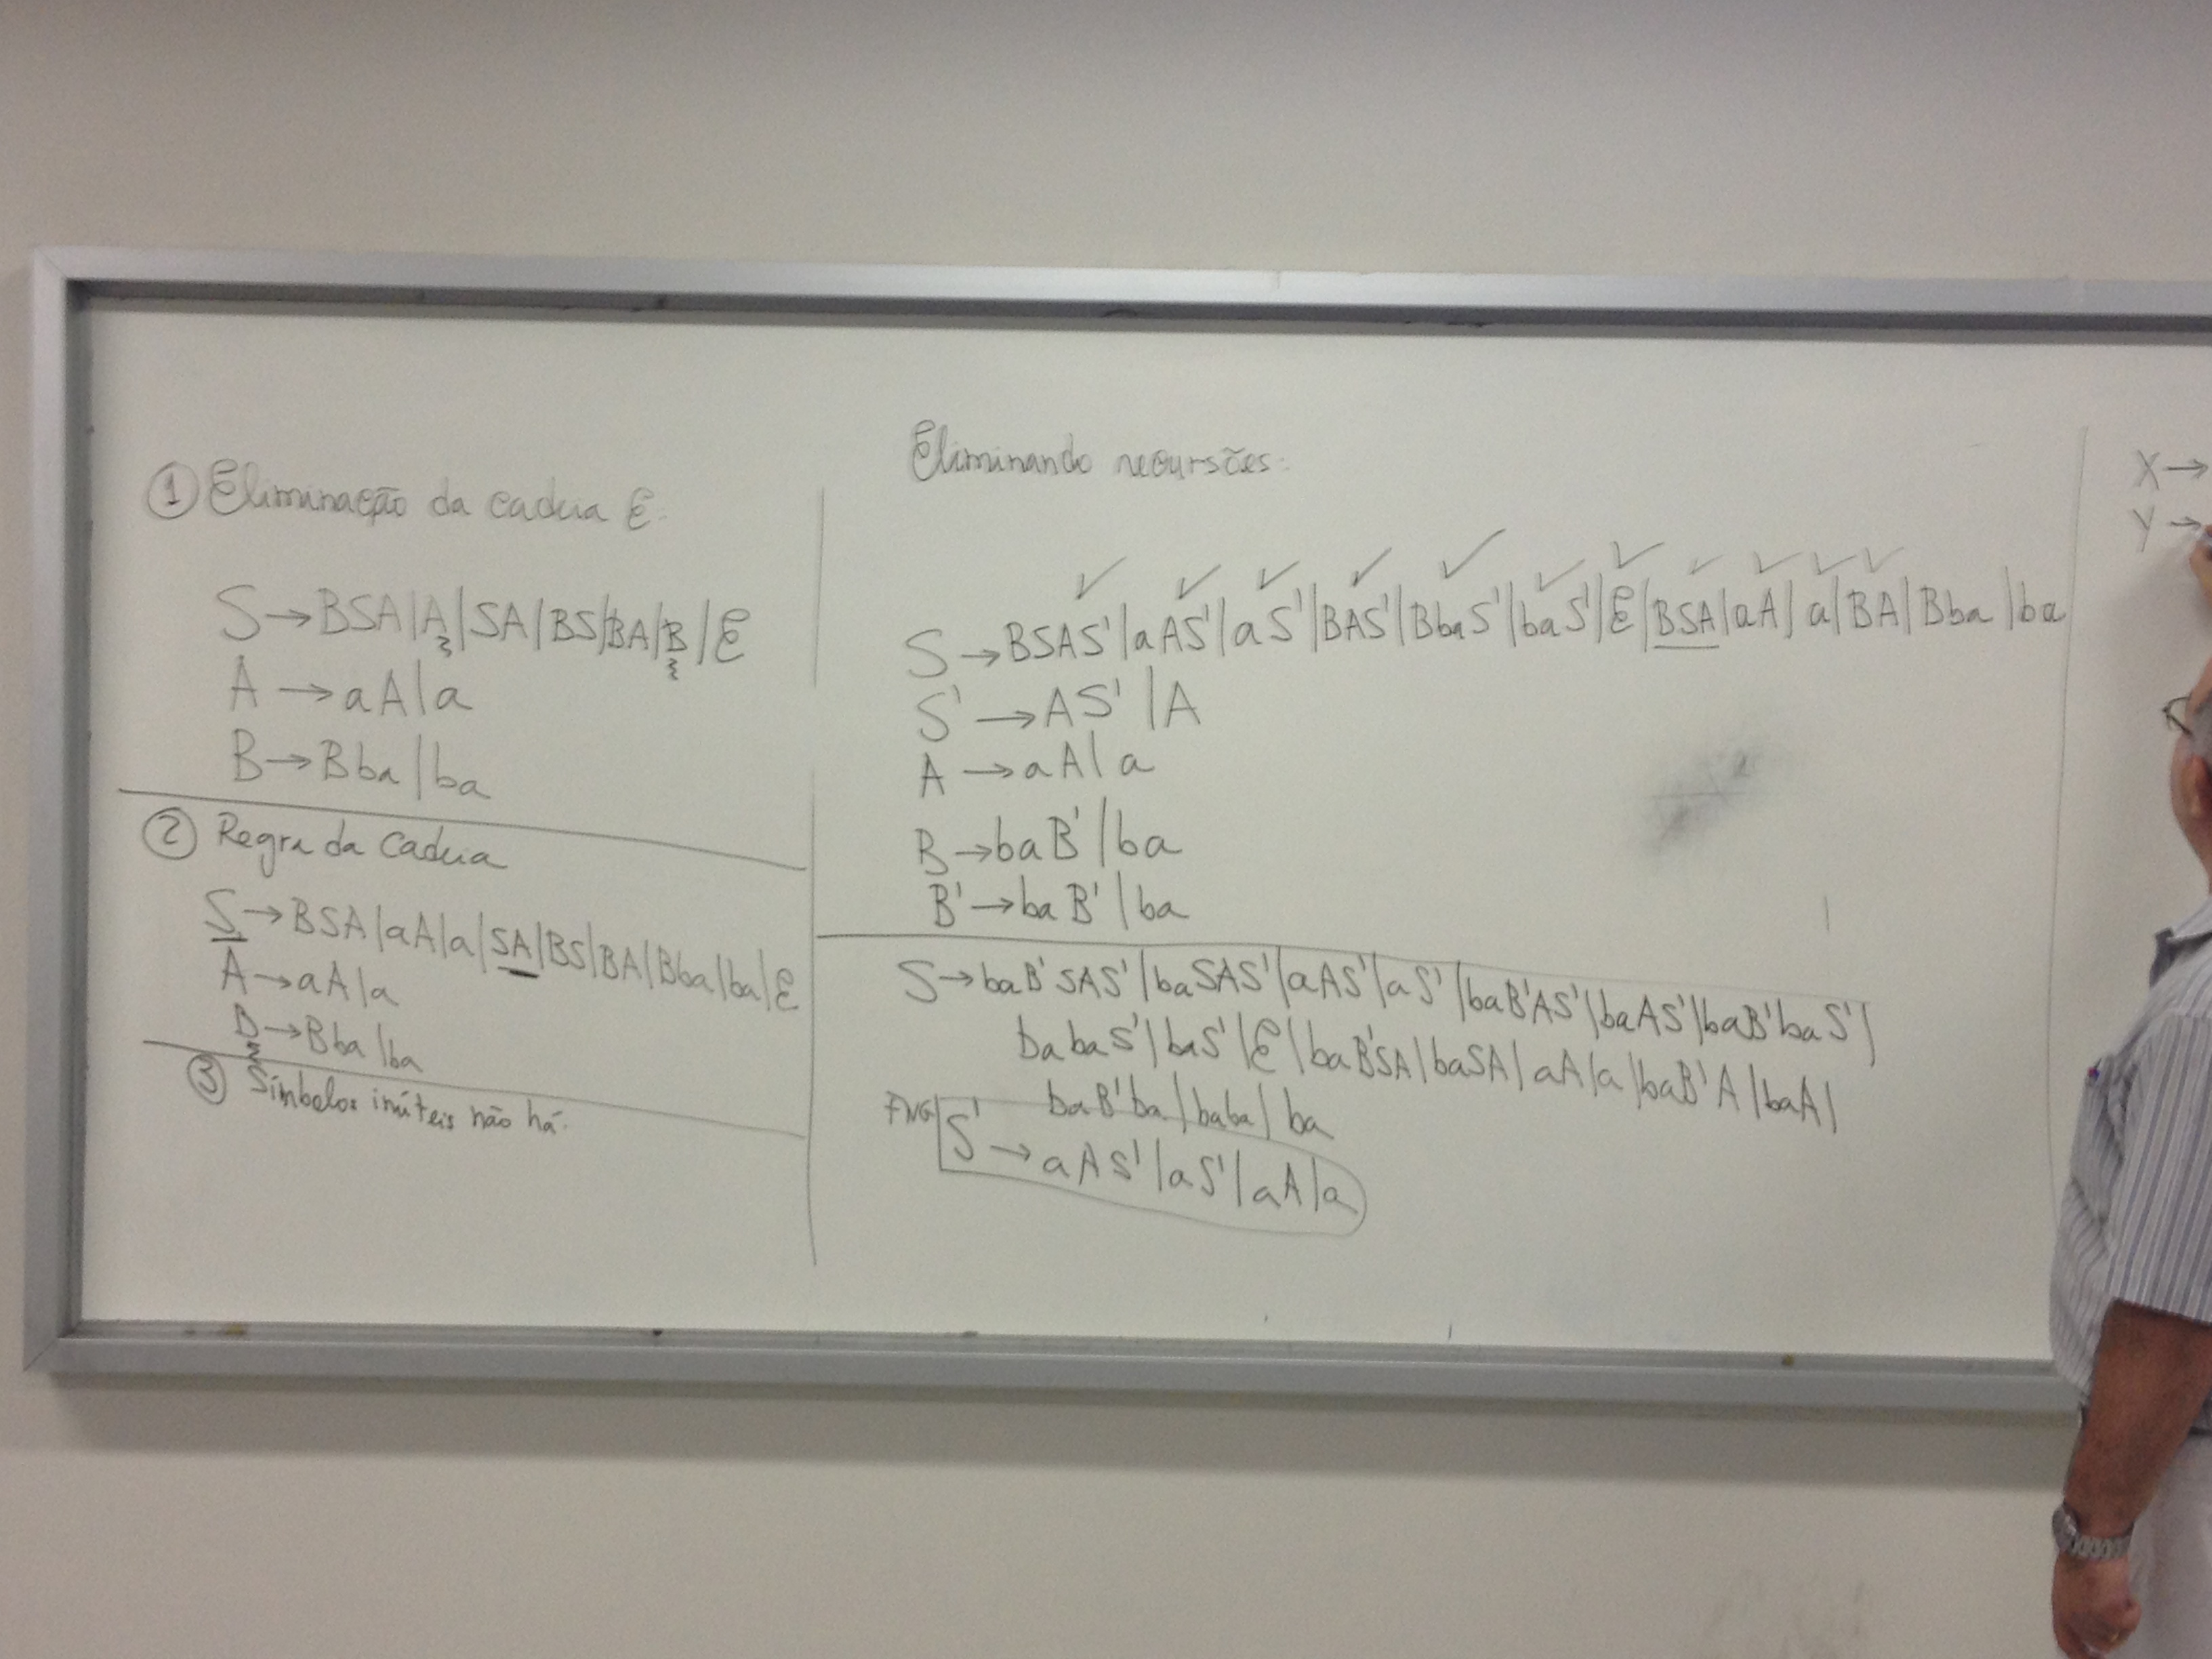 ① Eliminação da cadeia ε:
S → BSA|A|SA|BS|BA|B|ε
A → aA|a
B → Bba|ba
② Regra da Cadeia
S → BSA|aA|a|SA|BS|BA|Bba|ba|ε
A → aA|a
B → Bba|ba
③ Símbolos inúteis não há.
Eliminando recursões:
✓ ✓ ✓ ✓ ✓ ✓ ✓ ✓ ✓ ✓ ✓
S → BSAS'|aAS'|aS'|BAS'|BbaS'|baS'|ε|BSA|aA|a|BA|Bba|ba
S' → AS'|A
A → aA|a
B → baB'|ba
B' → baB'|ba
S → baB'SAS'|baSAS'|aAS'|aS'|baB'AS'|baAS'|baB'baS'|
babaS'|baS'|ε|baB'SA|baSA|aA|a|baB'A|baA|
baB'ba|baba|ba
FNG S' → aAS'|aS'|aA|a
X →
Y →